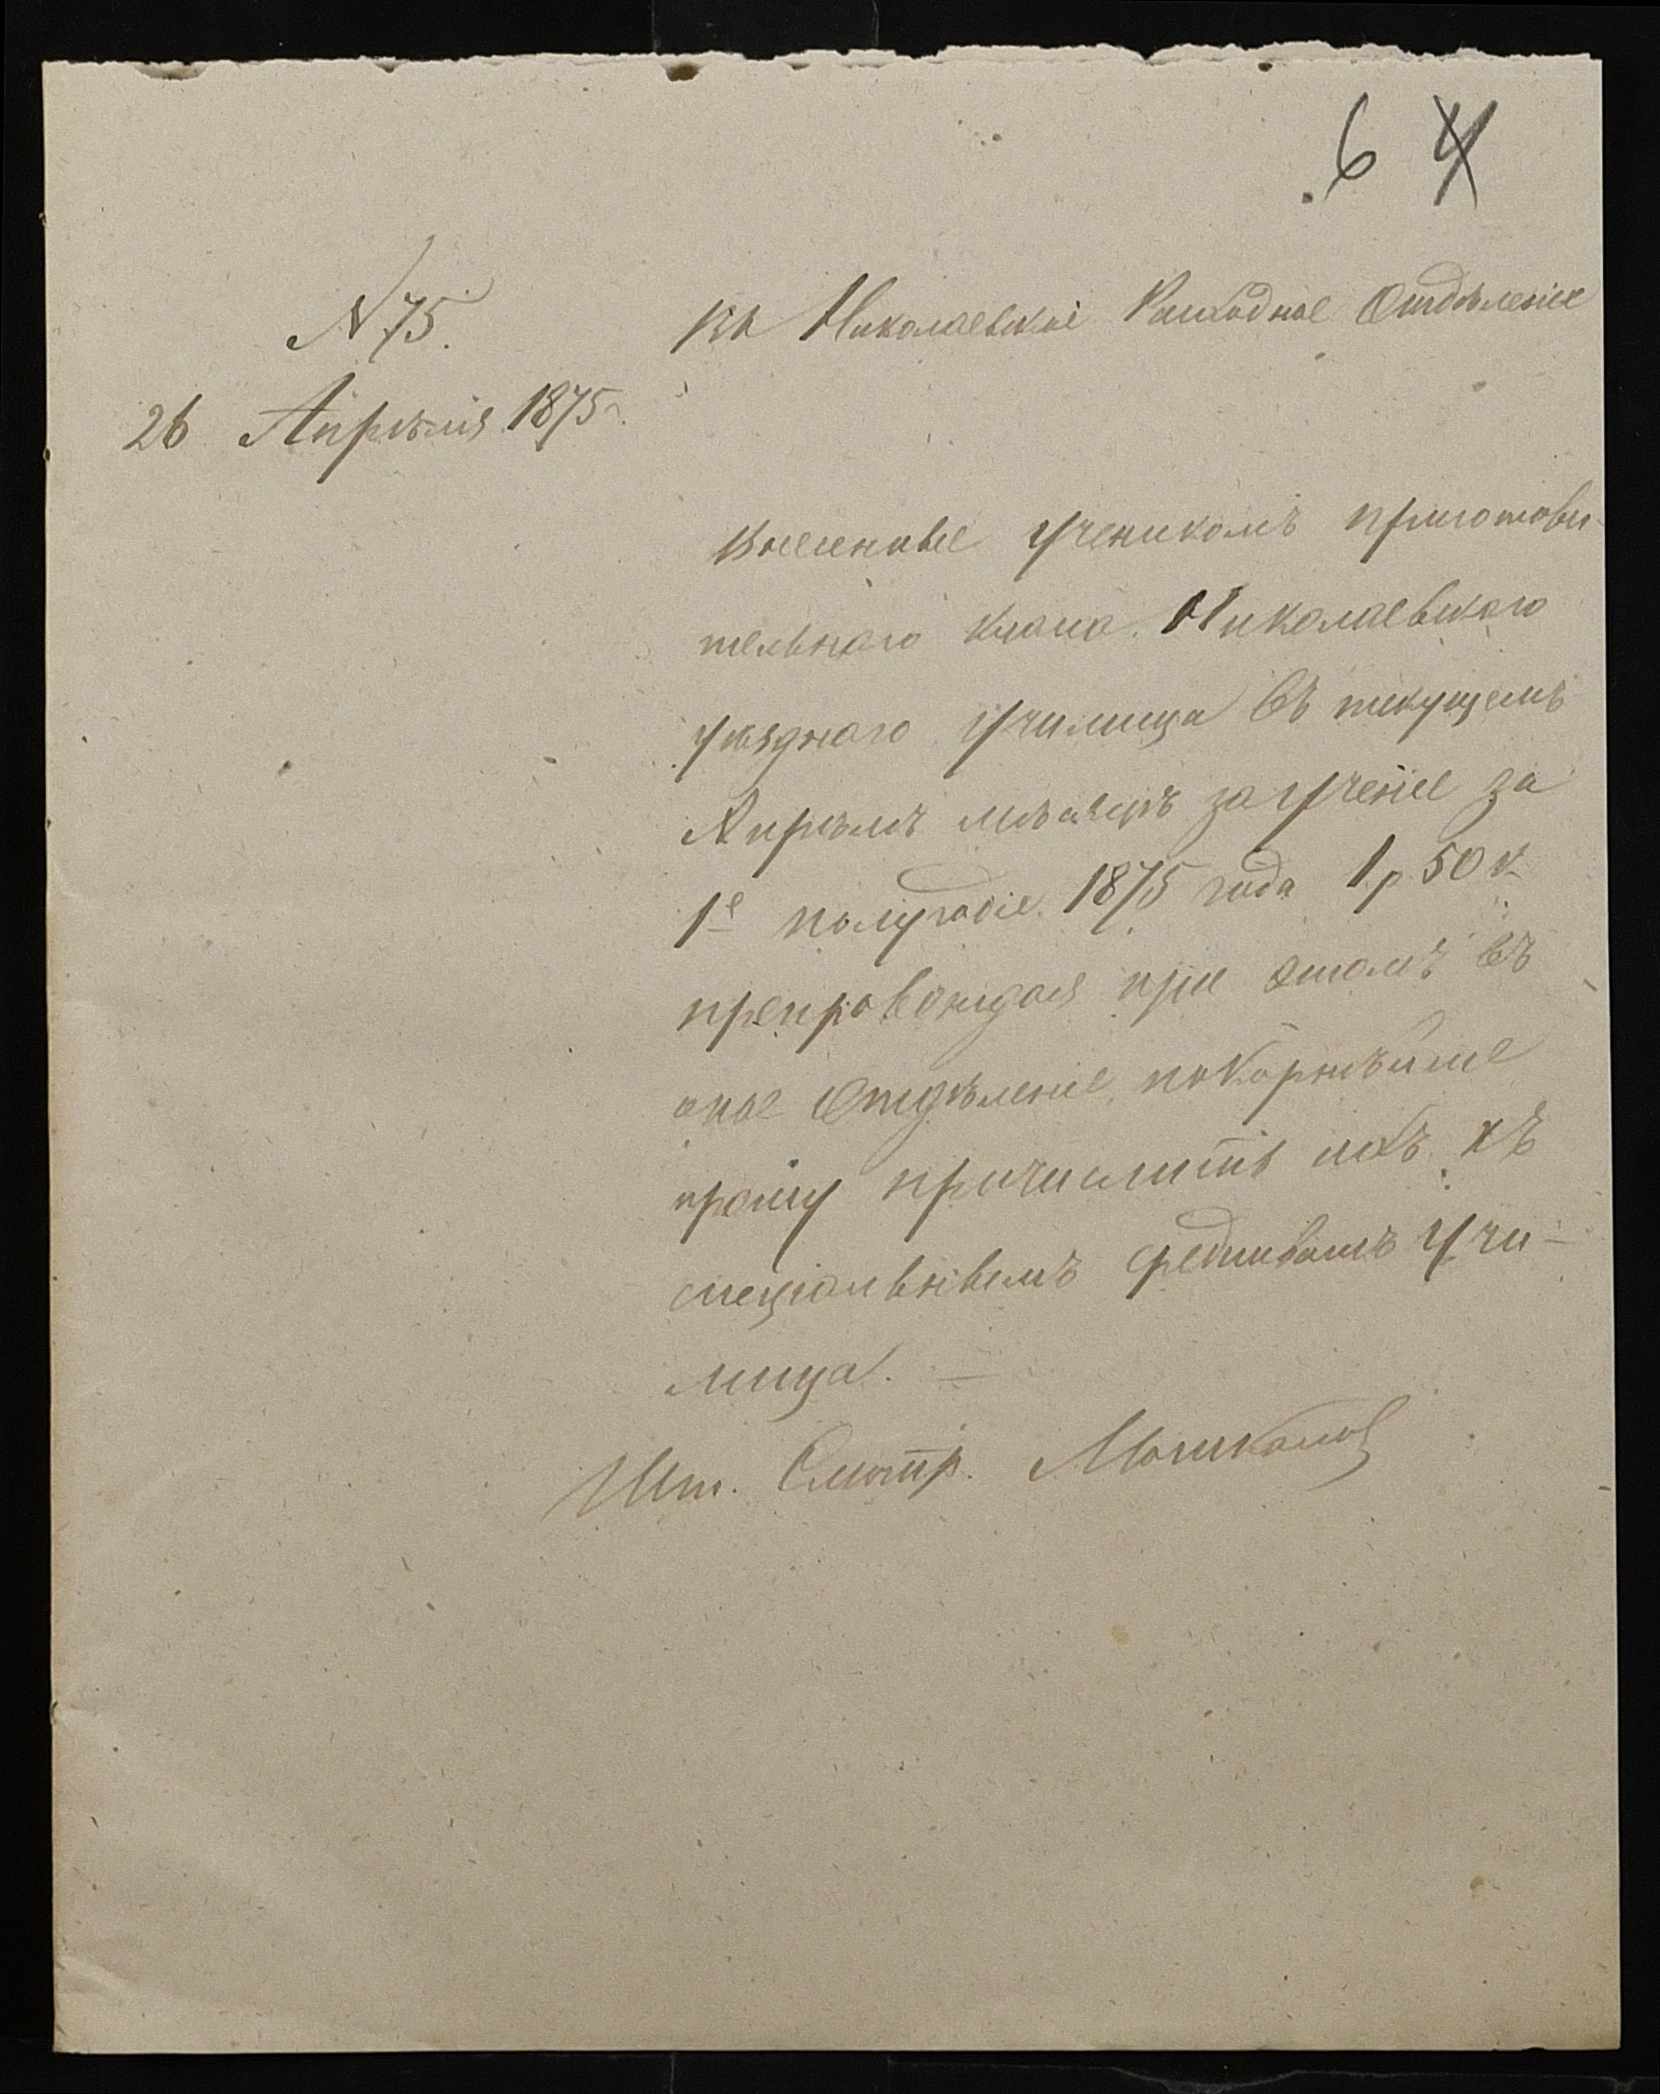 6 4
N 75.
26 Апрѣля 1875 г.
Въ Николаевское Расходное Отдѣленіе
Внесенные ученикомъ приготови-
тельнаго класса Николаевскаго
уѣзднаго училища въ текущемъ
Апрѣлѣ мѣсяцѣ за ученіе за
1е полугодіе 1875 года 1 р 50 к
препровождая при этомъ въ
оное Отдѣленіе, покорнѣйше
прошу причислить ихъ къ
спеціальнымъ средствамъ учи-
лища. —
Шт. Смотр.